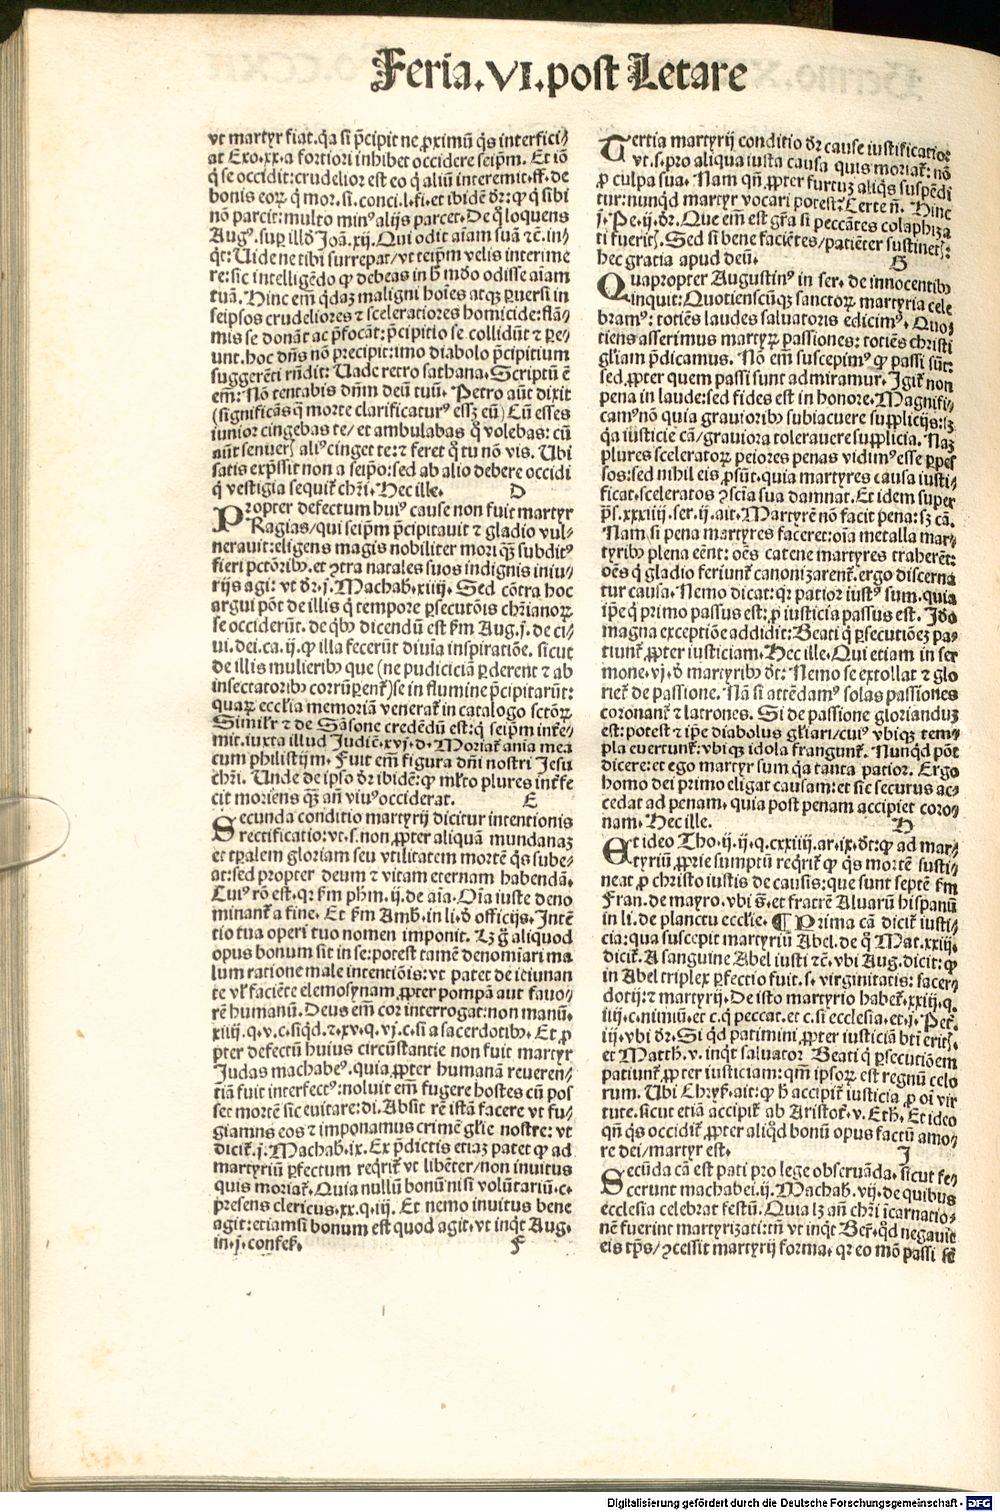 Feria.VI.post Letare
vt martyr fiat.q̄a si p̄cipit ne ꝓximū q̄s interfici⸗
at Exo.xx.a fortiori inhibet occidere seip̄m. Et iō
q̄ se occidit:crudelior est eo q̄ aliū interemit.ff.de
bonis eoꝝ q̄ mor.si.conci.l.fi.et ibidē d̄r:ꝙ q̄ sibi
nō parcit:multo minꝰ alijs parcet.De q̄ loquens
Augꝰ.suꝑ illd̄ Joā.xij.Qui odit aīam suā ⁊c.in⸗
q̄t:Uide ne tibi surrepat/vt teip̄m velis interime
re:sic intelligēdo ꝙ debeas in h̄ mūdo odisse aīam
tuā.Hinc em̄ q̄daz maligni hoīes atqꝫ ꝑuersi in
seipsos crudeliores ⁊ sceleratiores homicide:flā⸗
mis se donāt ac p̄focāt:p̄cipitio se collidūt ⁊ ꝑe⸗
unt.hoc dn̄s nō precipit:imo diabolo p̄cipitium
suggerēti rn̄dit: Uade retro sathana.Scriptū ē
em̄:Nō tentabis dn̄m deū tuū. Petro aūt dixit
(significās q̄ morte clarificaturꝰ esset eū) Cū esses
iunior cingebas te/et ambulabas q̄ volebas: cū
aūt senueris aliꝰ cinget te:⁊ feret q̄ tu nō vis. Ubi
satis exp̄ssit non a seip̄o:sed ab alio debere occidi
q̄ vestigia sequit̄ chr̄i.Hec ille. D
Propter defectum huiꝰ cause non fuit martyr
Ragias/qui seip̄m p̄cipitauit ⁊ gladio vul⸗
nerauit:eligens magis nobiliter mori q̄ꝫ subditꝰ
fieri pctōribꝰ.et ɔtra natales suos indignis iniu⸗
rijs agi: vt d̄r.j.Machab̄.xiiij. Sed cōtra hoc
argui pōt de illis q̄ tempore ꝑsecutōis chr̄ianoꝝ
se occiderūt.de qbꝰ dicendū est fm̄ Aug.j.de ci⸗
ui.dei.ca.ij.ꝙ illa fecerūt diuīa inspiratiōe. sicut
de illis mulieribꝰ que (ne pudiciciā ꝑderent ⁊ ab
insectatoribꝰ corrūꝑent̄)se in flumine p̄cipitarūt:
quaꝝ ecclia memoriā venerat̄ in catalogo sctōꝝ
Simil̄r ⁊ de Sāsone credēdū est:q̄ seip̄m int̄e⸗
mit.iuxta illud Judic̄.xvj.d.Moriat̄ anīa mea
cum philistijm. Fuit em̄ figura dn̄i nostri Jesu
chr̄i. Unde de ipso d̄r ibidē:ꝙ ml̄to plures int̄fe
cit moriens q̄ꝫ an̄ viuꝰ occiderat. E
Secunda conditio martyrij dicitur intentionis
rectificatio:vt.s.non ꝓpter aliquā mundanaꝫ
et tꝑalem gloriam seu vtilitatem mortē q̄s sube⸗
at:sed propter deum ⁊ vitam eternam habendā.
Cuiꝰ rō est.qr fm̄ ph̄m.ij.de aīa.Oīa iuste deno
minant̄ a fine. Et fm̄ Amb̄.in li.ď officijs.Intē
tio tua operi tuo nomen imponit. Lꝫ ḡ aliquod
opus bonum sit in se:potest tamē denomīari ma
lum ratione male intentiōis:vt patet de ieiunan
te vl̄ faciēte elemosynam ꝓpter pompā aut fauo⸗
rē humanū.Deus em̄ cor interrogat:non manū.
xiiij.q.v.c.siq̄d.⁊.xv.q.vj.c.si a sacerdotibꝰ. Et ꝓ
pter defectū huius circūstantie non fuit martyr
Judas machabeꝰ.quia ꝓpter humanā reueren⸗
tiā fuit interfectꝰ:noluit em̄ fugere hostes cū pos
set mortē sic euitare:di.Absit rē istā facere vt fu⸗
giamus eos ⁊ imponamus crimē gl̄ie nostre: vt
dicit̄.j.Machab̄.ix.Ex p̄dictis etiaꝫ patet ꝙ ad
martyriū ꝑfectum reqrit̄ vt libēter/non inuitus
quis moriat̄.Quia nullū bonū nisi volūtariū.c.
presens clericus.xx.q.iij. Et nemo inuitus bene
agit:etiamsi bonum est quod agit.vt inq̄t Aug.
in.j.confes̄. F
Tertia martyrij conditio d̄r cause iustificatio:
vt.s.pro aliqua iusta causa quis moriat̄: nō
ꝓ culpa sua. Nam qn̄ ꝓpter furtuꝫ aliq̄s suspēdi
tur:nunqd̄ martyr vocari potest? Certe n̄. Hinc
j.Pe.ij.d̄r. Que em̄ est gr̄a si peccātes colaphiza
ti fueritis. Sed si bene faciētes/patiēter sustinetis:
hec gratia apud deū. G
Quapropter Augustinꝰ in ser. de innocentibꝰ
inquit:Quotienscūqꝫ sanctoꝝ martyria cele
bramꝰ: totiēs laudes saluatoris edicimꝰ. Quo⸗
tiens asserimus martyꝝ passiones: totiēs christi
gl̄iam p̄dicamus. Nō em̄ suscepimꝰ ꝙ passi sūt:
sed ꝓpter quem passi sunt admiramur. Igit̄ non
pena in laude:sed fides est in honore.Magnifi⸗
camꝰ nō quia grauioribꝰ subiacuere supplicijs:sꝫ
q̄a iusticie cā/grauiora tolerauere supplicia. Naꝫ
plures sceleratoꝝ peiores penas vidimꝰ esse ꝑpes
sos:sed nihil eis ꝓsūt.quia martyres causa iusti⸗
ficat.sceleratos ɔscīa sua damnat.Et idem super
p̄s.xxxiiij.ser.ij.ait.Martyrē nō facit pena:sꝫ cā.
Nam si pena martyres faceret:oīa metalla mar⸗
tyribꝰ plena eēnt: oēs catene martyres traherēt:
oēs q̄ gladio feriunt̄ canonizarent̄.ergo discerna
tur causa. Nemo dicat: qr patior iustꝰ sum.quia
ip̄e q̄ primo passus est: ꝓ iusticia passus est. Ideo
magna exceptiōe addidit:Beati q̄ ꝑsecutiōeꝫ pa⸗
tiunt̄ ꝓpter iusticiam.Hec ille. Qui etiam in ser
mone.vj.ď martyribꝰ d̄t: Nemo se extollat ⁊ glo
riet̄ de passione. Nā si attēdamꝰ solas passiones
coronant̄ ⁊ latrones. Si de passione glorianduꝫ
est:potest ⁊ ip̄e diabolus gl̄iari/cuiꝰ vbiqꝫ tem⸗
pla euertunt̄:vbiqꝫ idola frangunt̄. Nunqd̄ pōt
dicere:et ego martyr sum q̄a tanta patior. Ergo
homo dei primo eligat causam:et sic securus ac⸗
cedat ad penam.quia post penam accipiet coro⸗
nam.Hec ille. H
Et ideo Tho.ij.ij.q.cxxiiij.ar.ix.d̄t:ꝙ ad mar⸗
tyriū ꝓprie sumptū reqrit̄ ꝙ q̄s mortē susti⸗
neat ꝓ christo iustis de causis:que sunt septē fm̄
Fran.de mayro.vbi s̄.et fratrē Aluarū hispanū
in li.de planctu eccl̄ie. ¶ Prima cā dicit̄ iusti⸗
cia:qua suscepit martyriū Abel.de q̄ Mat.xxiij.
dicit̄.A sanguine Abel iusti ⁊c.vbi Aug.dicit:ꝙ
in Abel triplex ꝑfectio fuit.s.virginitatis: sacer⸗
dotij:⁊ martyrij.De isto martyrio habet̄.xxiij.q.
iiij.c.nimiū.et c.q̄ peccat.et c.si ecclesia.et.j.Petr̄.
iij.vbi d̄r.Si q̄d patimini ꝓpter iusticiā bt̄i eritis.
et Matth̄.v.inq̄t saluator Beati q̄ ꝑsecutiōem
patiunt̄ ꝓpter iusticiam:qm̄ ipsoꝝ est regnū celo
rum. Ubi Chrys̄.ait:ꝙ h̄ accipit̄ iusticia ꝓ oī vir
tute.sicut etiā accipit̄ ab Aristot̄.v.Eth̄. Et ideo
qn̄ q̄s occidit̄ ꝓpter aliq̄d bonū opus factū amo⸗
re dei/martyr est. J
Secūda cā est pati pro lege obseruāda.sicut fe⸗
cerunt machabei.ij.Machab̄.vij.de quibus
ecclesia celebrat festū. Quia lꝫ an̄ chr̄i īcarnatio⸗
nē fuerint martyrizati:tn̄ vt inq̄t Ber̄.qd̄ negauit
eis tp̄s/ɔcessit martyrij forma.qr eo mō passi sūt
Digitalisierung gefördert durch die Deutsche Forschungsgemeinschaft - DFG